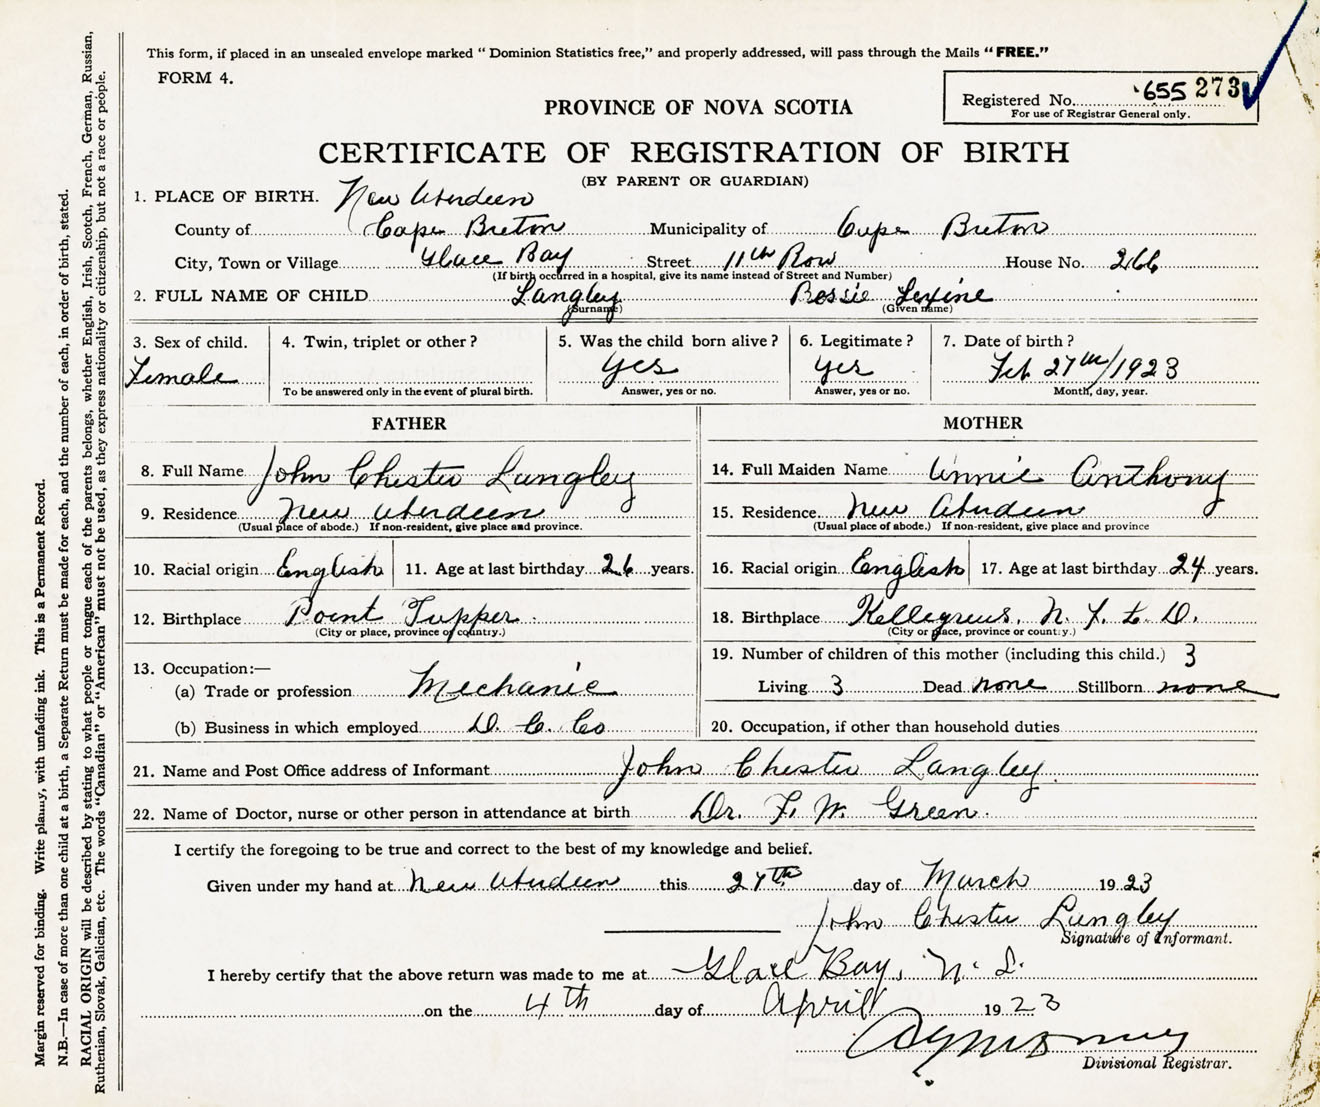 This form, if placed in an unsealed envelope marked “ Dominion Statistics free,” and properly addressed, will pass through the Mails “ FREE.”
FORM 4.
Registered No. 655 273
For use of Registrar General only.
PROVINCE OF NOVA SCOTIA
CERTIFICATE OF REGISTRATION OF BIRTH
(BY PARENT OR GUARDIAN)
1. PLACE OF BIRTH. New Aberdeen
County of Cape Breton Municipality of Cape Breton
City, Town or Village Glace Bay Street 11th Row House No. 266
(If birth occurred in a hospital, give its name instead of Street and Number)
2. FULL NAME OF CHILD Langley Bessie Lexine
(Surname) (Given name)
3. Sex of child. 4. Twin, triplet or other ? 5. Was the child born alive ? 6. Legitimate ? 7. Date of birth ?
Female Yes Yes Feb 27th/1923
To be answered only in the event of plural birth. Answer, yes or no. Answer, yes or no. Month, day, year.
FATHER MOTHER
8. Full Name John Chester Langley 14. Full Maiden Name Annie Anthony
9. Residence New Aberdeen 15. Residence New Aberdeen
(Usual place of abode.) If non-resident, give place and province. (Usual place of abode.) If non-resident, give place and province
10. Racial origin English 11. Age at last birthday 26 years. 16. Racial origin English 17. Age at last birthday 24 years.
12. Birthplace Point Tupper 18. Birthplace Kellegreus, N. F. L. D.
(City or place, province or country.) (City or place, province or country.)
13. Occupation:— 19. Number of children of this mother (including this child.) 3
(a) Trade or profession Mechanic Living 3 Dead none Stillborn none
(b) Business in which employed D. C. Co 20. Occupation, if other than household duties
21. Name and Post Office address of Informant John Chester Langley.
22. Name of Doctor, nurse or other person in attendance at birth Dr. F. W. Green.
I certify the foregoing to be true and correct to the best of my knowledge and belief.
Given under my hand at New Aberdeen this 27th day of March 1923
John Chester Langley
Signature of Informant.
I hereby certify that the above return was made to me at Glace Bay, N. S.
on the 4th day of April 1923
Divisional Registrar.
Margin reserved for binding. Write plainly, with unfading ink. This is a Permanent Record.
N.B.—In case of more than one child at a birth, a Separate Return must be made for each, and the number of each, in order of birth, stated.
RACIAL ORIGIN will be described by stating to what people or tongue each of the parents belongs, whether English, Irish, Scotch, French, German, Russian,
Ruthenian, Slovak, Galician, etc. The words “Canadian” or “American” must not be used, as they express nationality or citizenship, but not a race or people.